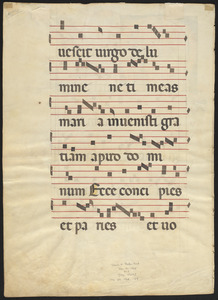 uescit uirgo de lu
mine ne ti meas
mari a inuenisti gra
tiam apud do mi
num Ecce conci pies
et pa ries et uo